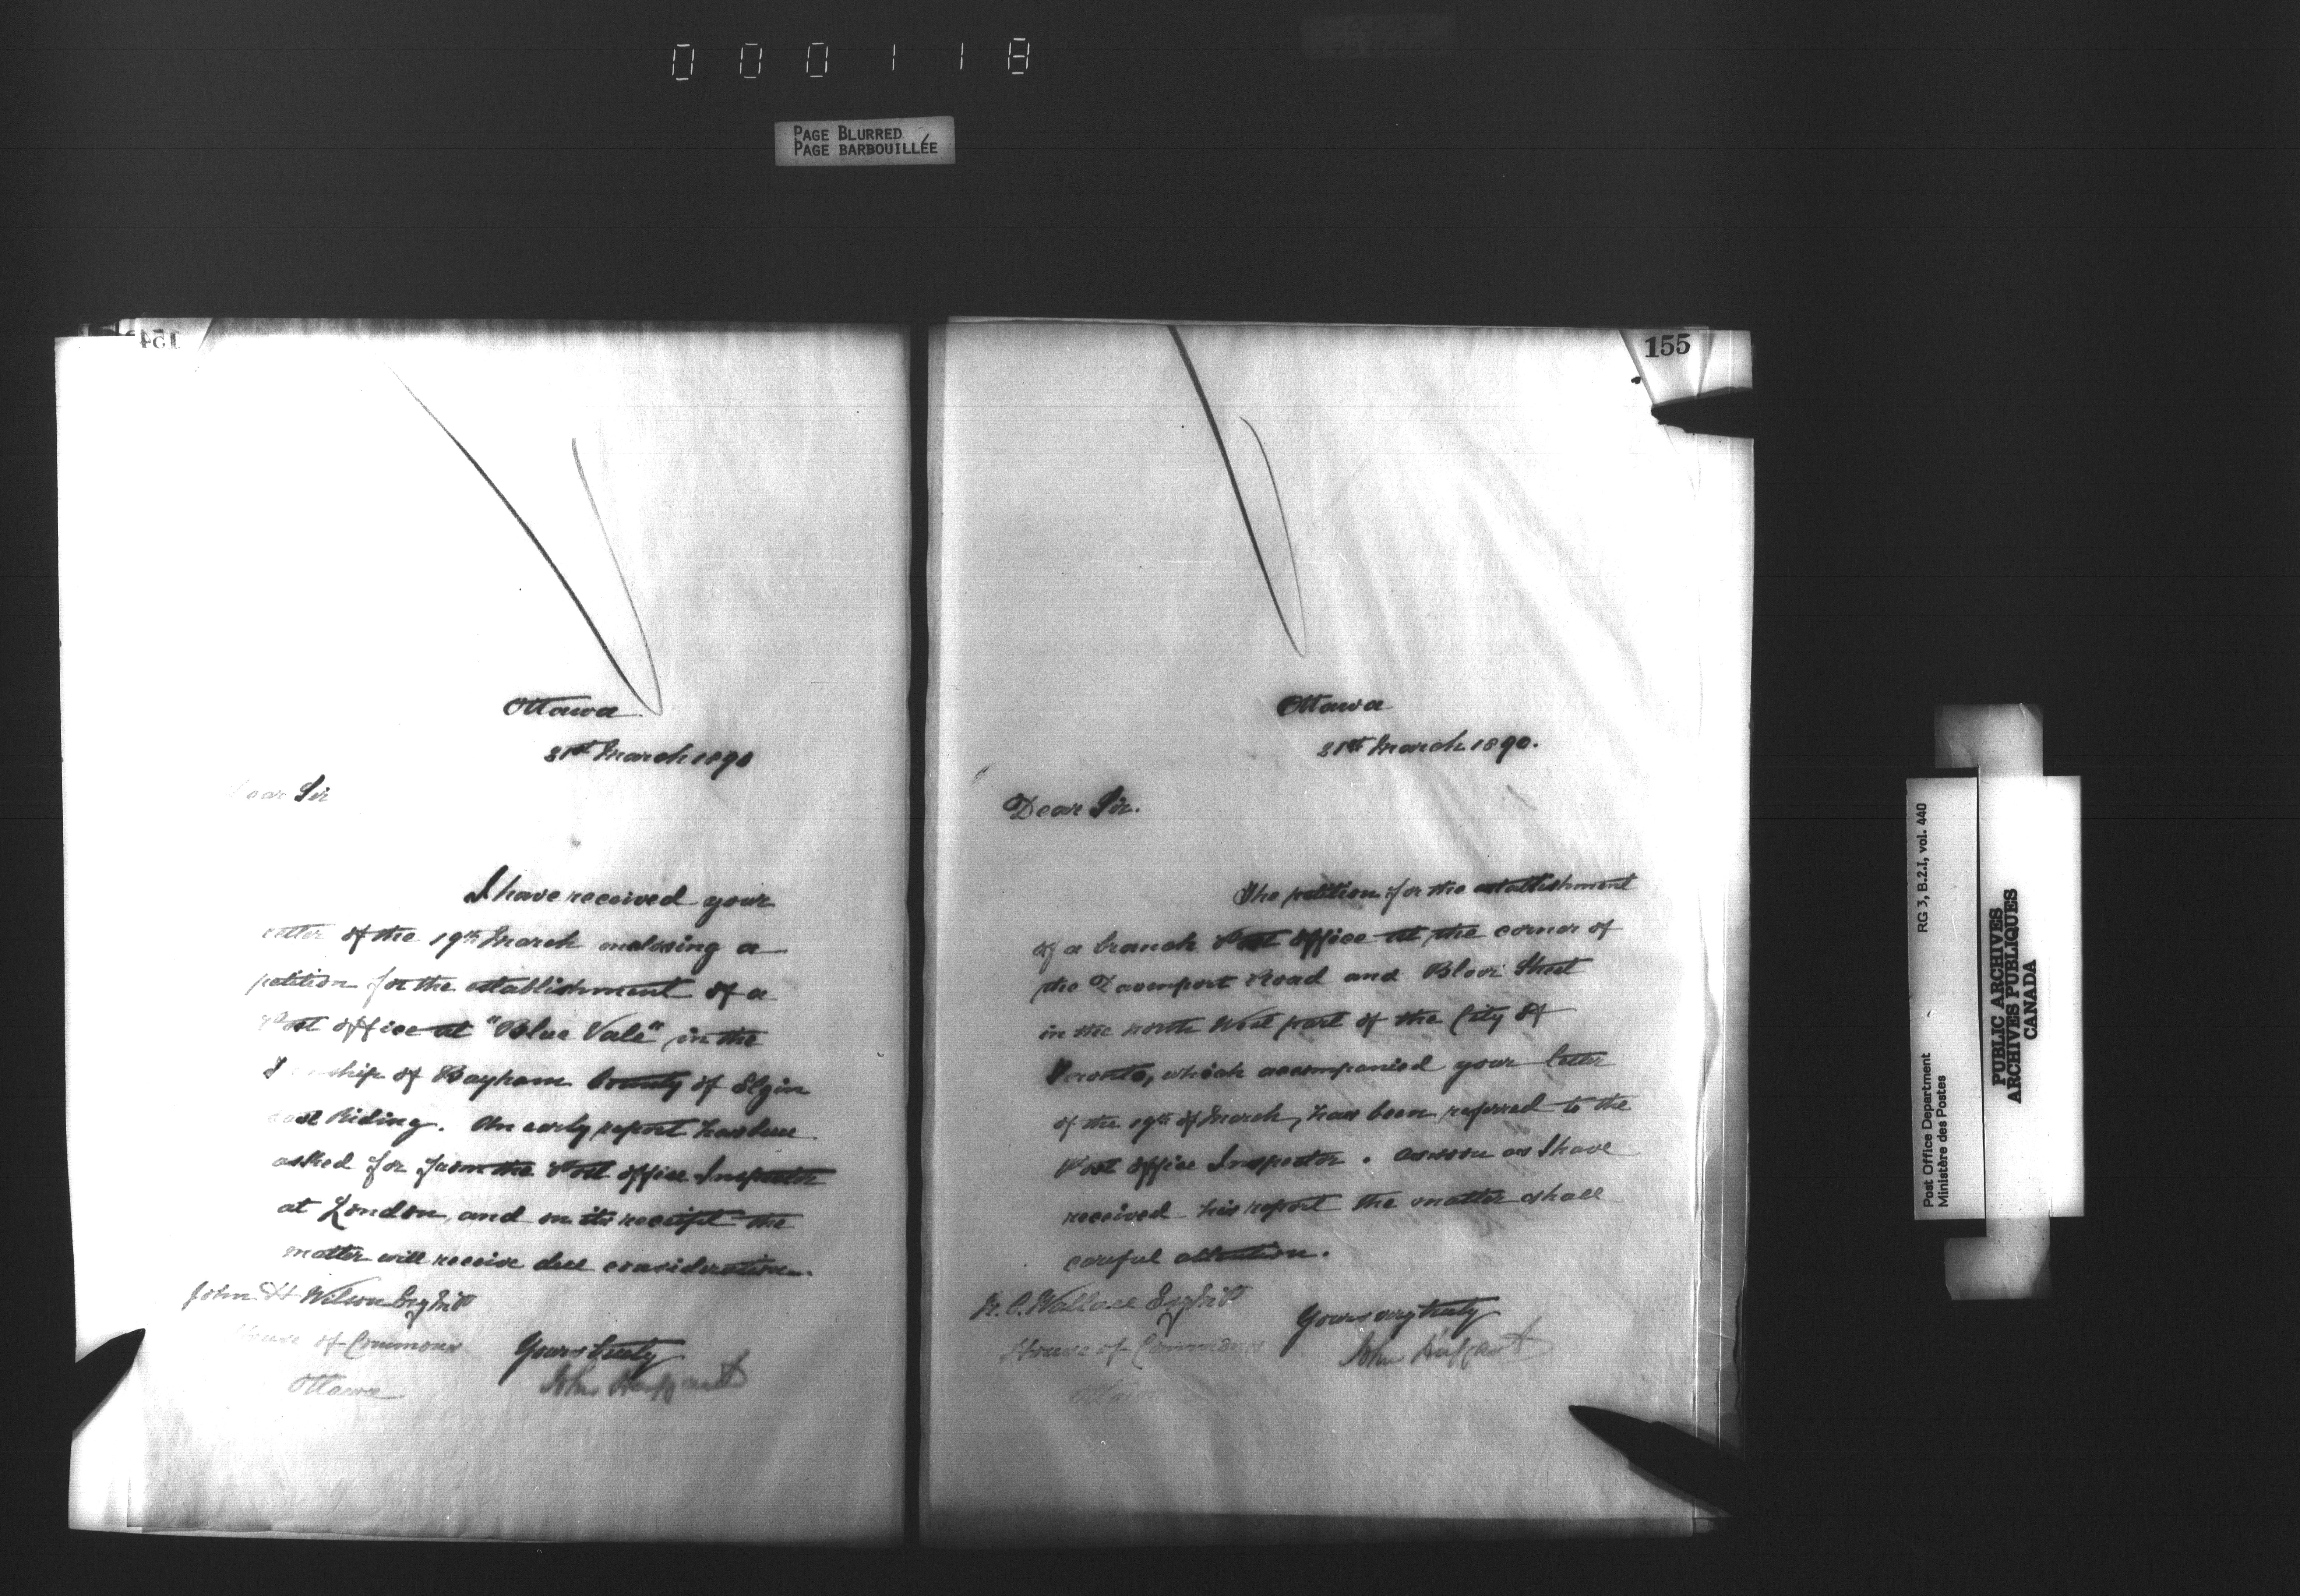 000118
PAGE BLURRED
PAGE BARBOUILLÉE
154
Ottawa
31st March 1890
Dear Sir
I have received your
letter of the 19th March enclosing a
petition for the establishment of a
Post office at "Blue Vale" in the
T ship of Bayham County of Elgin
East Riding. An early report has been
asked for from the Post office Inspector
at London, and on its receipt the
matter will receive due consideration.
John H Wilson Esq M.P
House of Commons
Ottawa
Yours truly
John Haggart
155
Ottawa
31st March 1890.
Dear Sir.
The petition for the establishment
of a branch Post office at the corner of
the Davenport Road and Bloor Street
in the north West part of the City of
Toronto, which accompanied your letter
of the 19th of March, has been referred to the
Post office Inspector. As soon as I have
received his report the matter shall
careful attention.
N. C. Wallace Esq M.P
House of Commons
Ottawa
Yours very truly
John Haggart
Post Office Department
Ministère des Postes
RG 3, B.2.I, vol. 440
PUBLIC ARCHIVES
ARCHIVES PUBLIQUES
CANADA